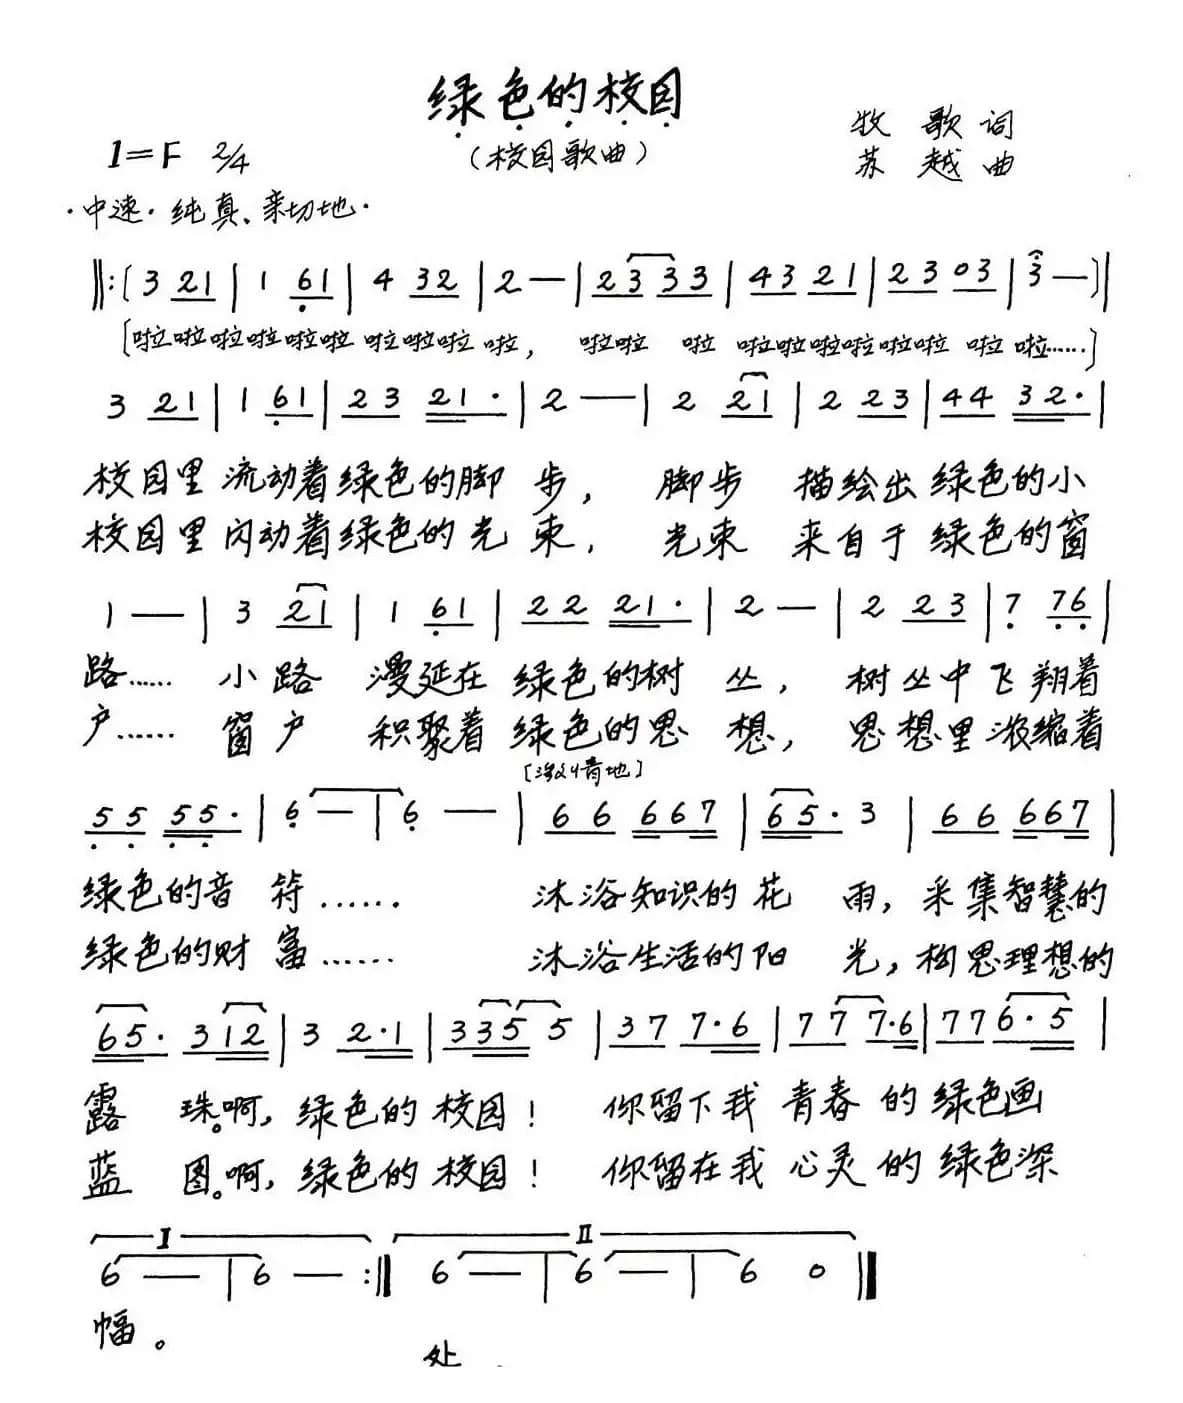 绿色的校园
(校园歌曲)
牧 歌 词
苏 越 曲
1=F 2/4
·中速·纯真、亲切地·
‖:(3 21 | 1 61 | 4 32 | 2 — | 23 33 | 43 21 | 23 03 | 3 — )|
[啦啦啦啦啦啦 啦啦啦 啦, 啦啦 啦 啦啦啦啦啦啦 啦 啦……]
3 21 | 1 61 | 23 21· | 2 — | 2 21 | 2 23 | 44 32· |
校园里 流动着绿色的脚 步, 脚步 描绘出 绿色的小
校园里 闪动着绿色的光 束, 光束 来自于 绿色的窗
1 — | 3 21 | 1 61 | 22 21· | 2 — | 2 23 | 7 76 |
路…… 小路 漫延在 绿色的树 丛, 树丛中飞翔着
户…… 窗户 积聚着 绿色的思 想, 思想里浓缩着
[激情地]
55 55· | 6 — | 6 — | 66 667 | 65· 3 | 66 667 |
绿色的音 符…… 沐浴知识的花 雨,采集智慧的
绿色的财 富…… 沐浴生活的阳 光,构思理想的
65· 312 | 3 2·1 | 335 5 | 37 7·6 | 77 7·6 | 77 6·5 |
露 珠。啊,绿色的 校园! 你留下我 青春 的 绿色画
蓝 图。啊,绿色的 校园! 你留在我 心灵 的 绿色深
I II
6 — | 6 — :‖ 6 — | 6 — | 6 0 ‖
幅。
处